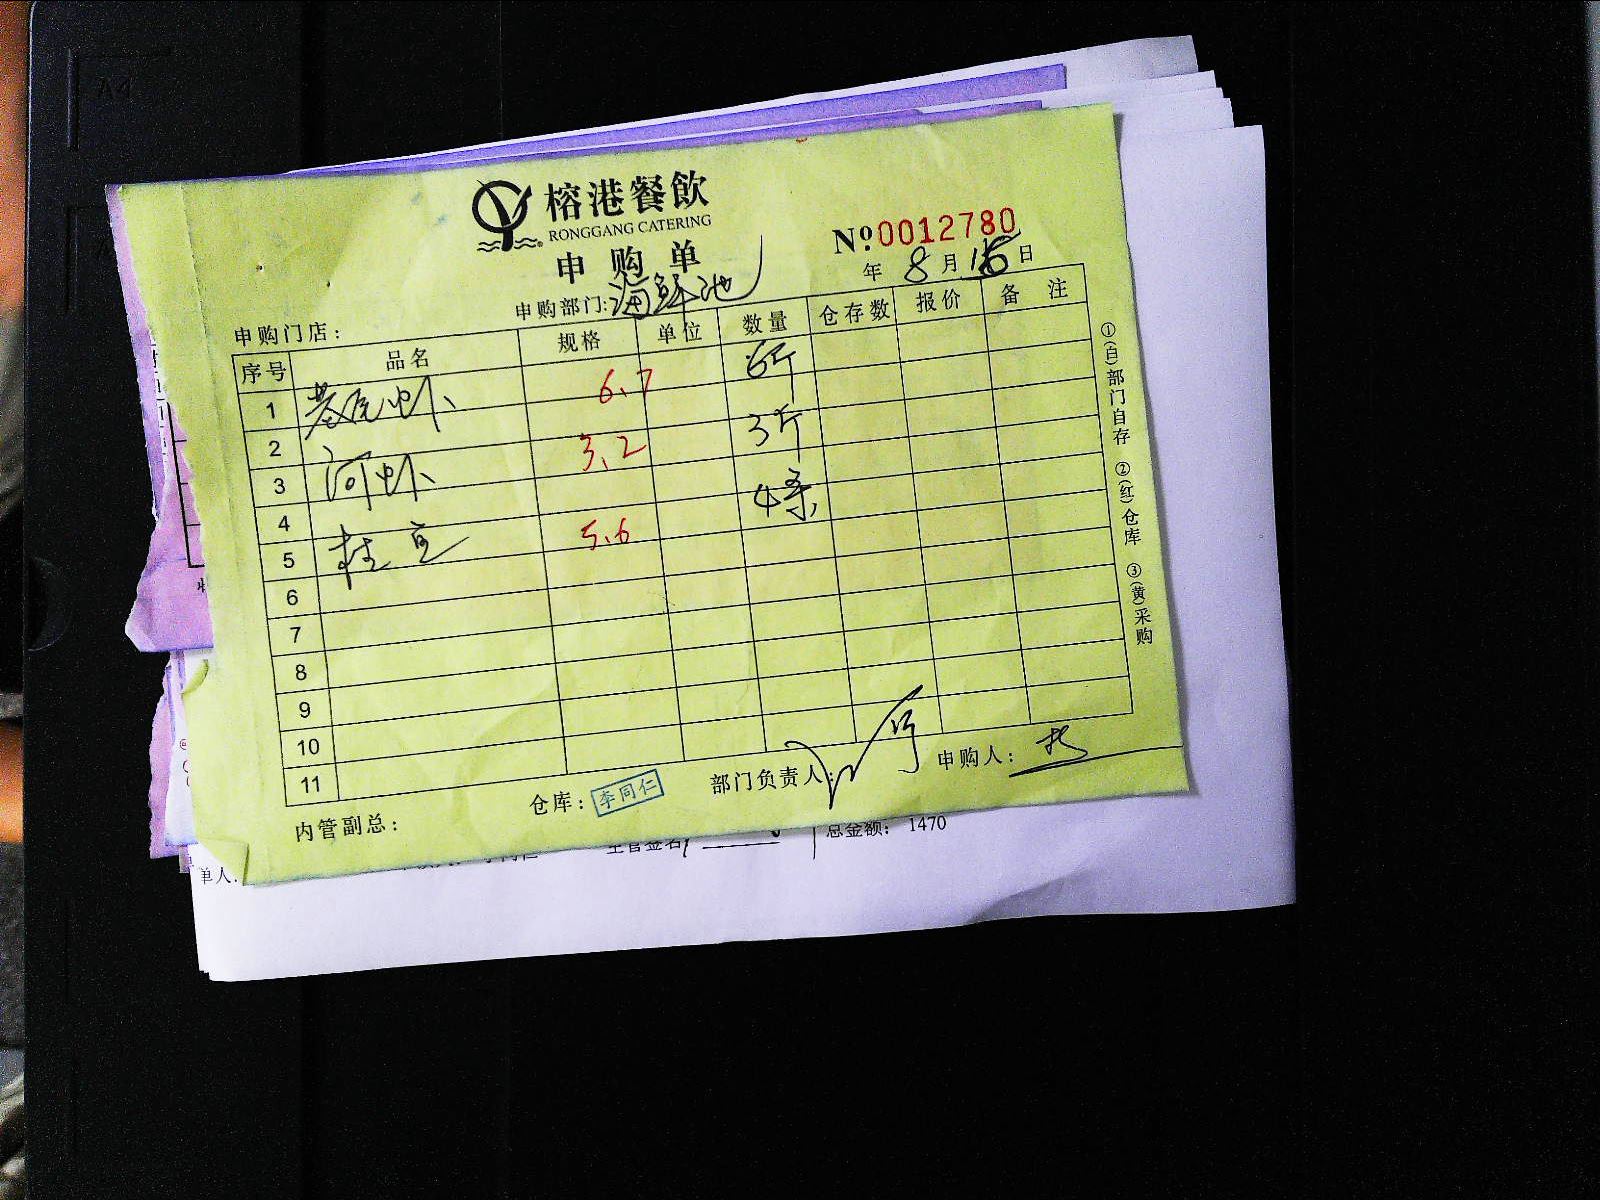 榕港餐飲
RONGGANG CATERING
申购单
№0012780
年 8月16日
申购门店： 申购部门:海鲜池
序号 品名 规格 单位 数量 仓存数 报价 备注
1 老虎虾 6.7 6斤
2
3 河虾 3.2 3斤
4
5 桂鱼 5.6 4条
6
7
8
9
10
11
内管副总： 仓库：李同仁 部门负责人： 申购人：
①(白)部门自存 ②(红)仓库 ③(黄)采购
单人: 主管签名 总金额： 1470